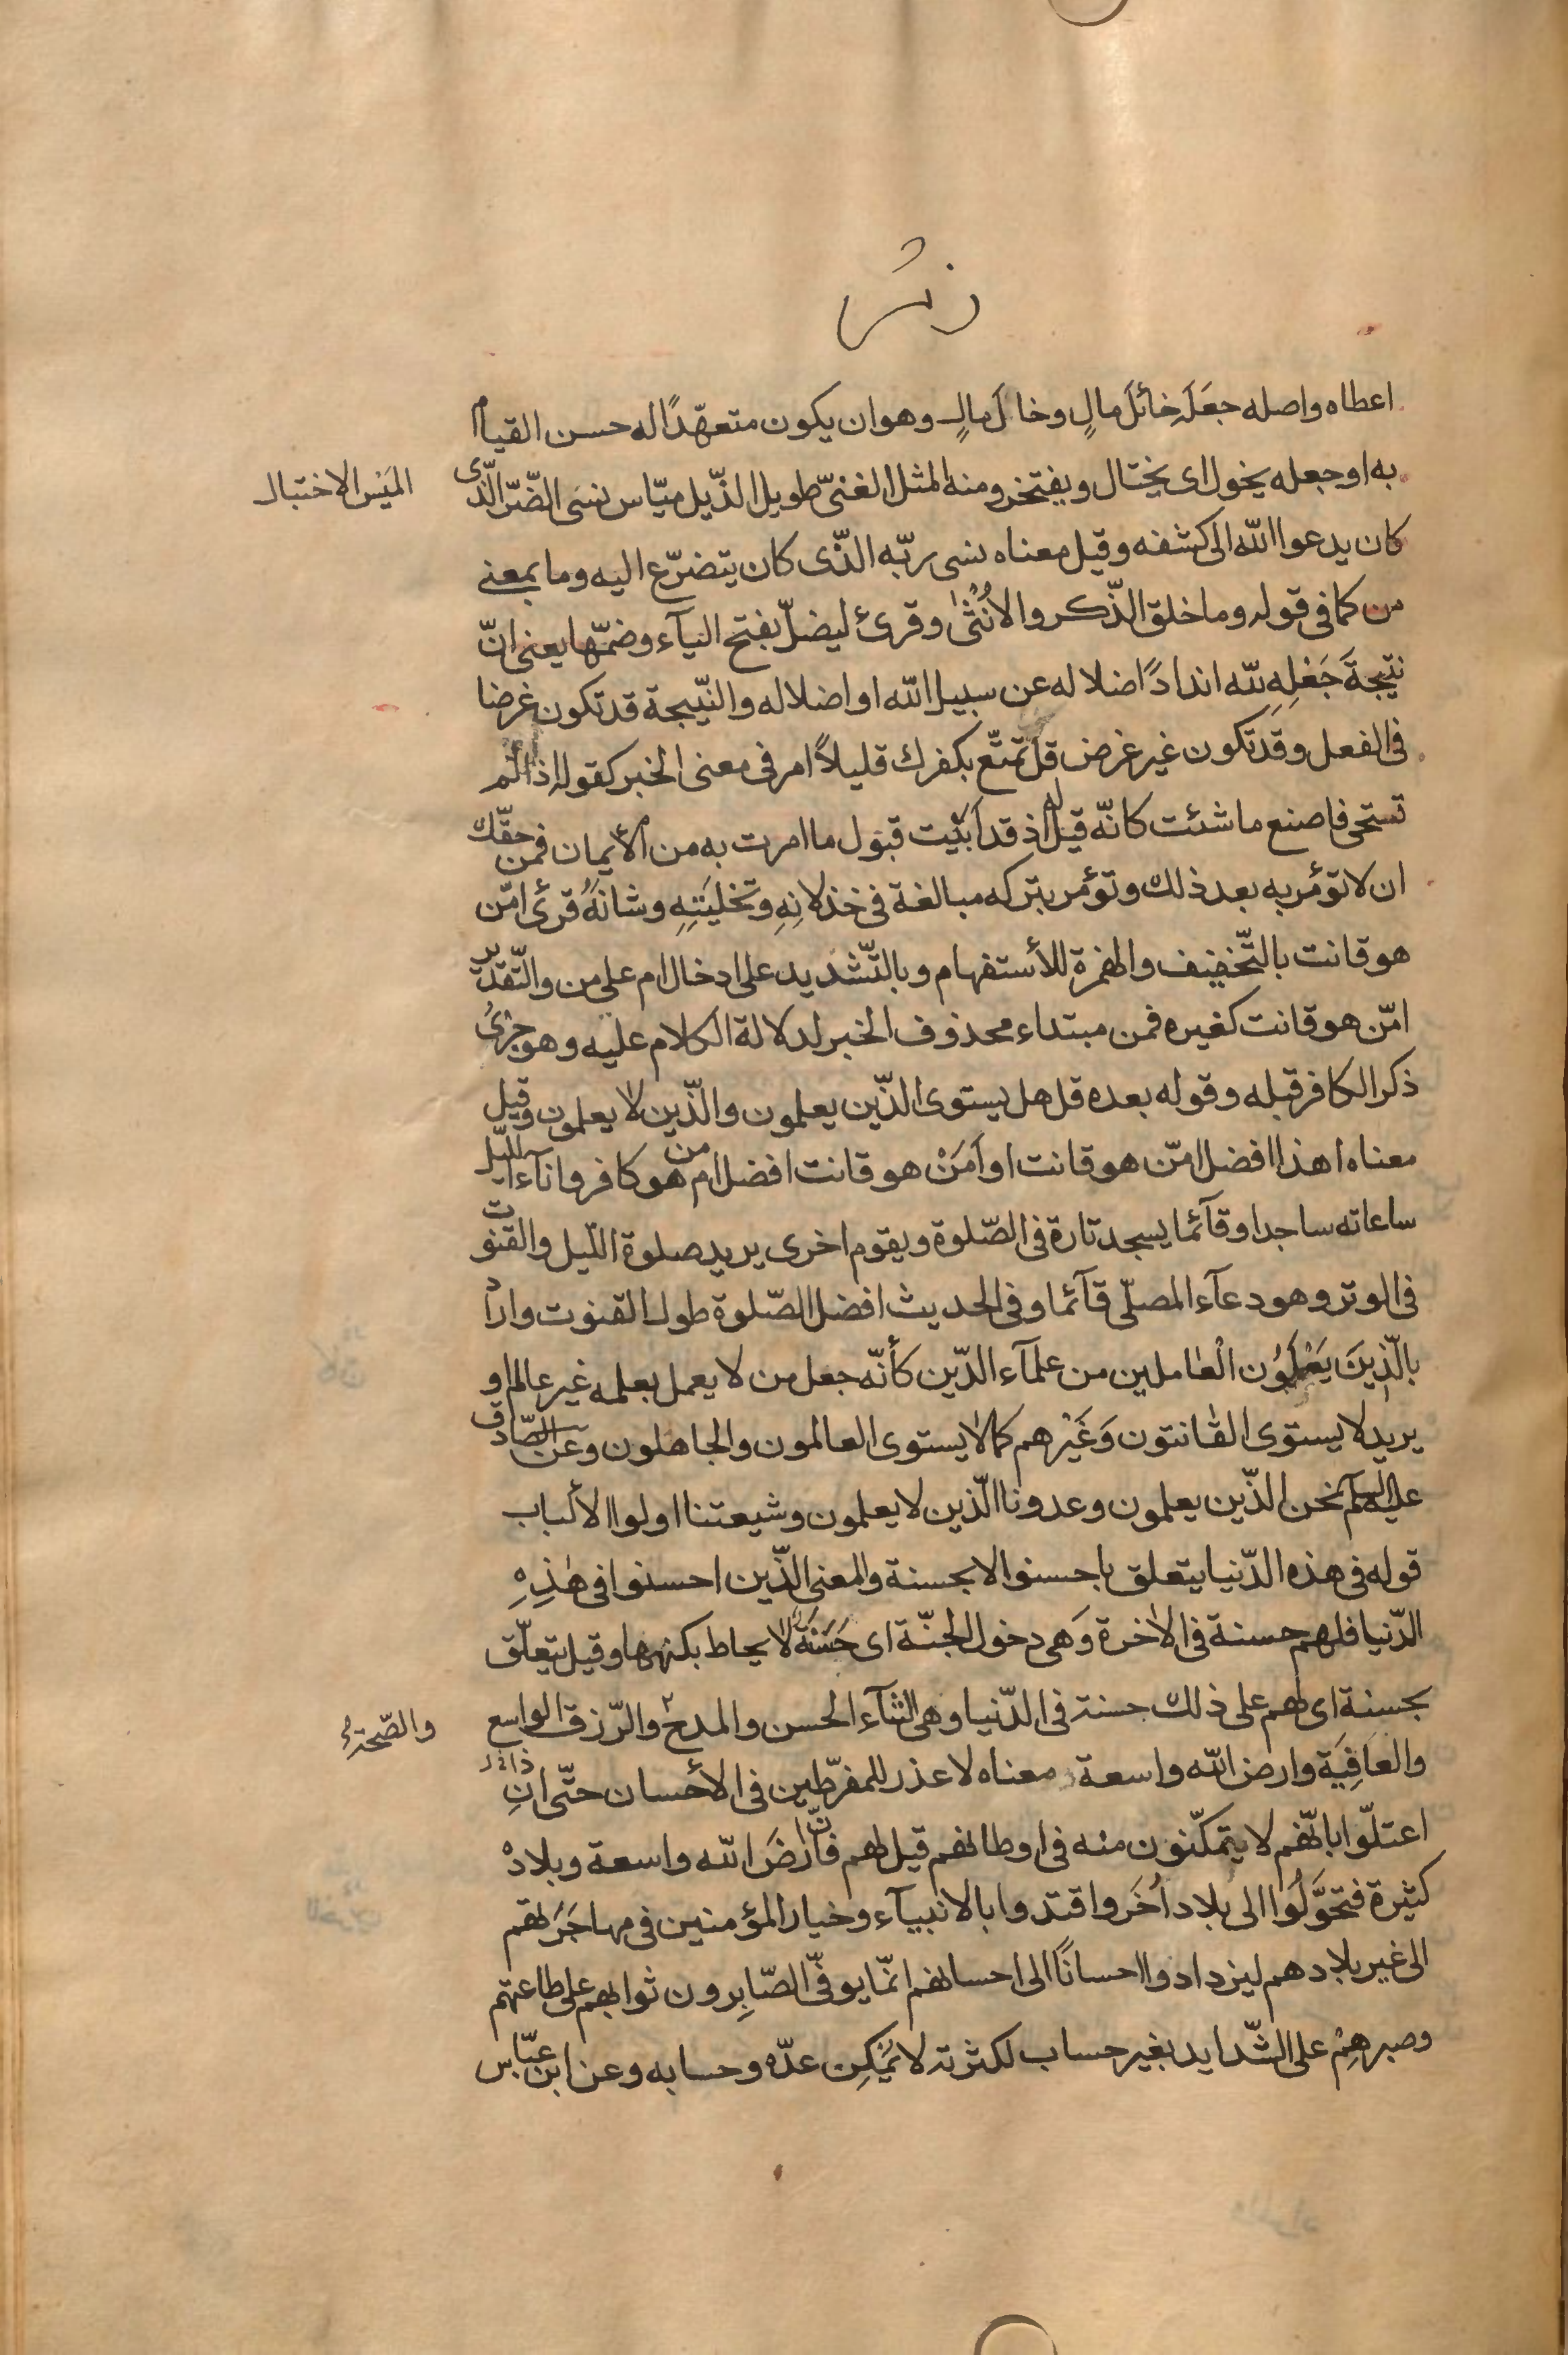 زمر
اعطاه واصله جعَلَه خائلَ مالٍ وخالَ مالٍ وهو ان يكون متعهّدًا له حسن القيام
به او جعله يخول اى يختال ويفتخر ومنه المثل الغنىّ طويل الذّيل ميّاس نسَى الضّرّ الّذى
الميَس الاختيال
كان يدعوا اللّه الى كشفه وقيل معناه نسى ربّه الذّى كان يتضرّع اليه وما بمعنى
من كما فى قوله وما خلق الذّكر والأُنْثىٰ وقرئ ليضلّ بفتح اليآء وضمّها يعنى انّ
نتيجةَ جَعْلِهِ للّه اندادًا ضلاله عن سبيل اللّه او اضلاله والنّتيجة قد تكون غرضا
فى الفعل وقد تكون غير غرض قل تمتّع بكفرك قليلاً امر فى معنى الخبر كقوله اذا لم
تستحى فاصنع ما شئت كانّه قيل له اذ قد اَبَيْت قبول ما امرت به من الأيمان فمن حقّك
ان لا تؤمر به بعد ذلك وتؤمر بتركه مبالغة فى خذلانِهِ وتخليَتِهِ وشانَهُ قرئ امّن
هو قانت بالتّخفيف والهمزة للأستفهام وبالتّشديد على ادخال ام على من والتّقدير
امّن هو قانت كغيره فمن مبتداء محذوف الخبر لدلالة الكلام عليه وهو جرىُ
ذكر الكافر قبله وقوله بعده قل هل يستوى الذّين يعلمون والذّين لا يعلمون وقيل
معناه اهذا افضل امّن هو قانت او اَمَنْ هو قانت افضل ام من هو كافر واناء الليّل
ساعاته ساجدا وقآئما يسجد تارة فى الصّلوة ويقوم اخرى يريد صلوة اللّيل والقنوت
فى الوتر وهو دعآء المصلّى قآئما وفى الحديث افضل الصّلوة طول القنوت واراد
بالّذِينَ يَعْلَمُون الْعٰاملين من علمآء الدّين كأنّه جعل من لا يعمل بعلمه غير عالم او
يريد لا يستوى القٰانتون وَغَيْرهم كما لا يستوى العالمون والجاهلون وعن الصّادق
عليه السلم نحن الذّين يعلمون وعدونا الّذين لا يعلمون وشيعتنا اولوا الألباب
قوله فى هذه الدّنيا يتعلق باحسنوا لا بحسنة والمعنى الذّين احسنوا فى هٰذِهِ
الدّنيا فلهم حسنة فى الاخرة وَهى دخول الجنّة اى حَسَنَةٌ لا يحاط بكنهها وقيل يتعلّق
بحسنة اى لهم على ذلك حسنة فى الدّنيا وهى الثنآء الحسن والمدح والرّزق الواسع
والصّحة
والعَافِيَة وارض اللّه واسعة معناه لا عذر للمفرّطين فى الأحسان حتّى انِ
اعتلّوا بانّهم لا يتمكّنون منه فى اوطانهم قيل لهم فانّ ارْضَ اللّه واسعة وبلاده
كثيرة فتحَوَّلُوا الى بلاد اُخَر واقتدوا بالانبيآء وخيار المؤمنين فى مهاجَرَتهم
الى غير بلادهم ليزدادوا احسانًا الى احسانهم انّما يوفّى الصّابِرون ثوابهم على طاعتهم
وصبرهِمْ على الشّدايد بغير حساب لكثرته لا يُمْكِن عدّه وحسابه وعن ابن عبّاس